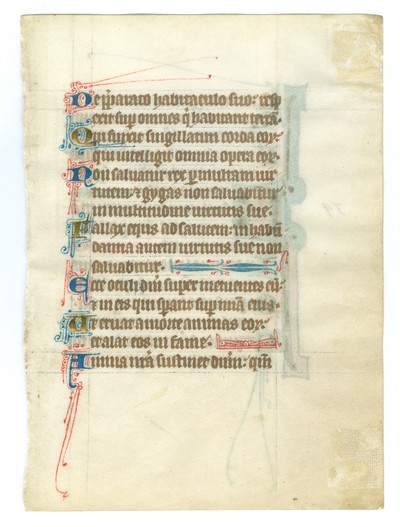 De p̄parato habitaculo suo: resp
exit sup̄ omnes q̄ habitant terrā.
Qui finxit singillatim corda eoꝝ:
qui intelligit omnia opera eoꝝ.
Non saluatur rex per multam uir
tutem: et gygas non saluabitur
in multitudine uirtutis sue.
Fallax equus ad salutem: in habū
dantia autem uirtutis sue non
saluabitur.
Ecce oculi dn̄i super metuentes eū:
et in eis qui sperant
Ut eruat a morte animas eoꝝ:
et alat eos in fame.
Anima nr̄a sustinet dn̄m: qm̄